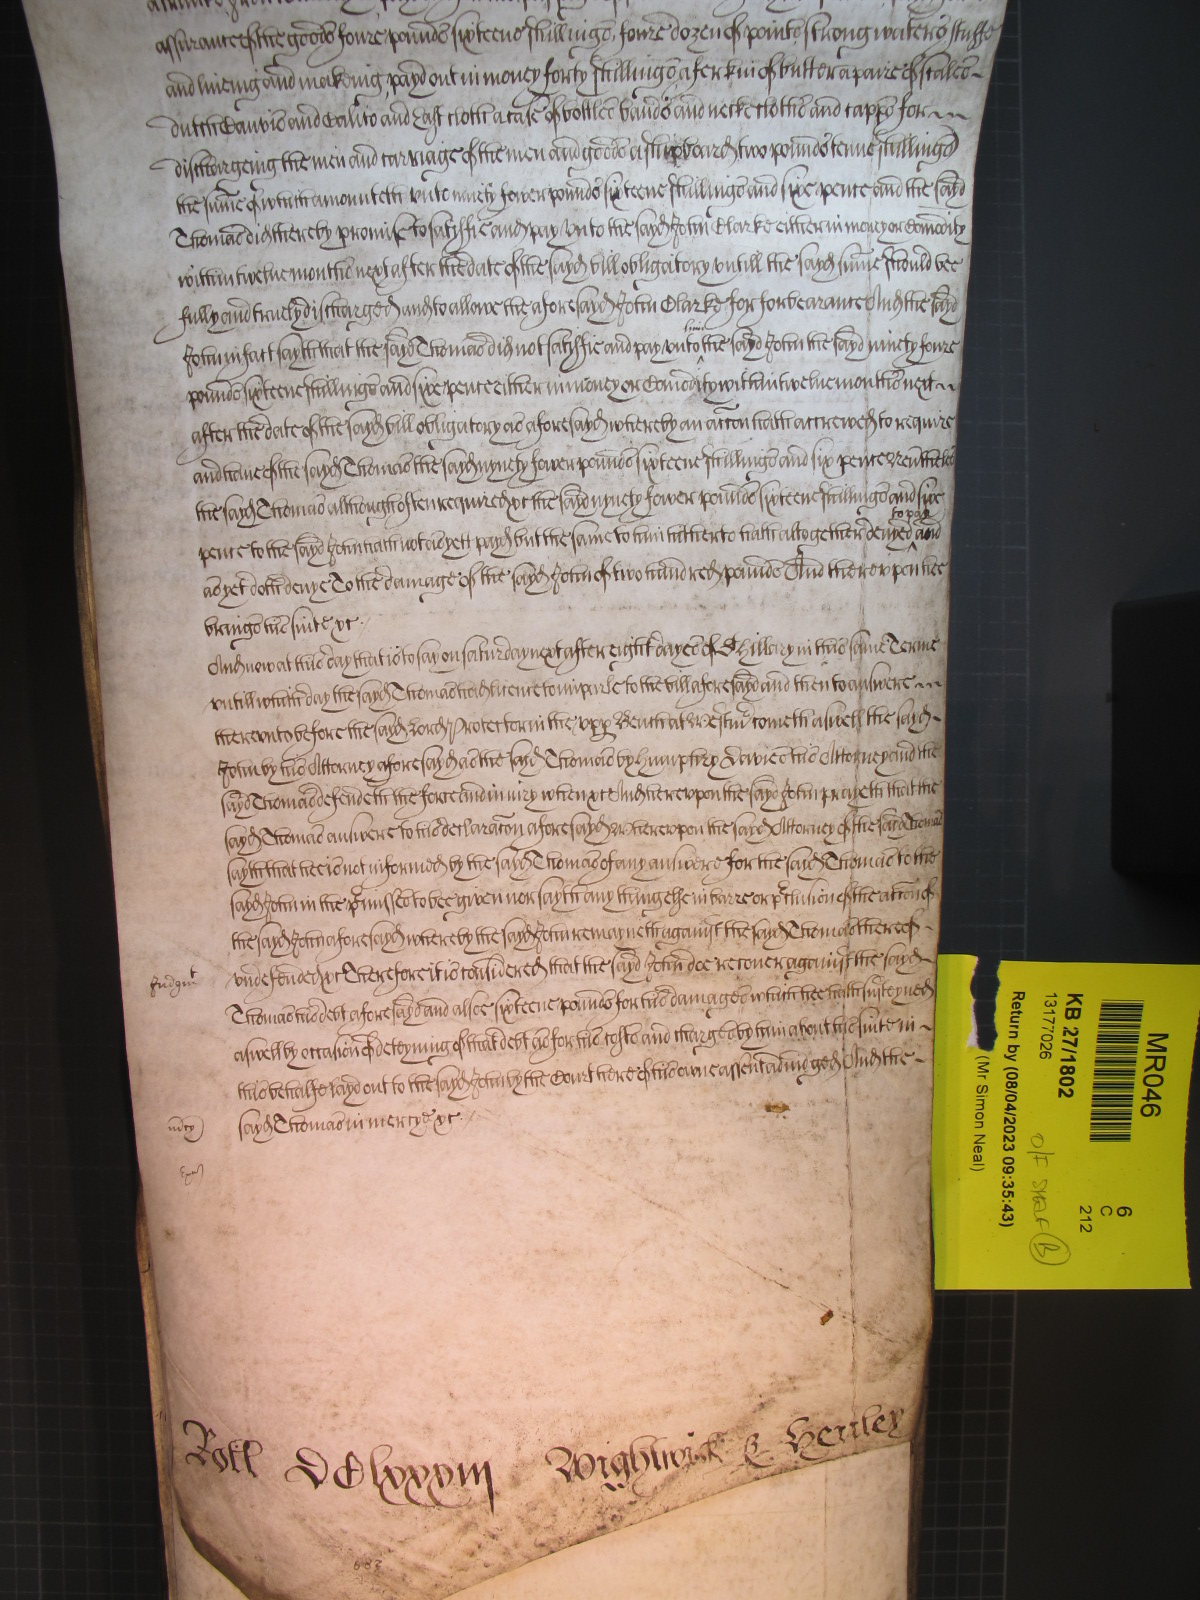 assurance of the goods foure pounds sixteene shillings, foure dozen of points strong waters stuffe
and lineing and makeing, payd out in money forty shillings a ferkin of butter a paire of scales
dutch Canvis and Calico and last cloth a case of bottles bands and neckclothes and capps for
dischargeing the men and carriage of the men and goods a shipboard two pounds tenne shillings
the sume of which amounteth unto ninety fower pounds sixteene shillings and sixe pence and the sayd
Thomas did thereby promise to satisfie and pay unto the sayd John Clarke either in money or Comodity
within twelve monthes next after the date of the sayd bill obligatory untill the sayd sume should bee
fully and truely discharged and to allowe the aforesayd John Clarke for forbearance And the sayd
John in fact sayth that the sayd Thomas did not satisfie and pay unto the sayd John the sayd ninety foure
pounds sixteene shillings and sixe pence either in money or Comodity within twelve monthes next
after the date of the sayd bill obligatory as aforesayd whereby an accon hath accrewed to require
and have of the sayd Thomas the sayd nynety fower pounds sixteene shillings and six pence Neverthelesse
the sayd Thomas although often required &c the sayd nynety fower pounds sixteene shillings and sixe
to pay
pence to the sayd John hath not as yett payd but the same to him hitherto hath altogether denyed and
as yet doth denye To the damage of the sayd John of two hundred pounds And thereupon hee
brings his suite &c.
And now at this day that is to say on Saturday next after eight dayes of St Hillary in this same Terme
untill which day the sayd Thomas had licence to imparle to the bill aforesayd and then to answere
thereunto before the sayd Lord Protector in the upp Bench at Westmr cometh aswell the sayd
John by his Attorney aforesayd as the sayd Thomas by Humphry Davies his Attorney and the
sayd Thomas defendeth the force and iniury when &c And thereupon the sayd John prayeth that the
sayd Thomas answere to his declaracon aforesayd Whereupon the sayd Attorney of the said Thomas
sayth that hee is not informed by the sayd Thomas of any answere for the said Thomas to the
sayd John in the premisses to bee given nor sayth any thing else in barre or preclusion of the accon of
the sayd John aforesayd whereby the sayd John remayneth against the sayd Thomas thereof
Judgmt
undefended &c Therefore it is considered that the sayd John doe recover against the sayd
Thomas his debt aforesayd and alsoe sixteene pounds for his damages which hee hath susteyned
aswell by occasion of deteyning of that debt as for his costs and charges by him about his suite in
this behalfe layd out to the sayd John by the Court here of his owne assent adiudged And the
mcy
sayd Thomas in mercye &c.
Roll DClxxxiij Wightwick & Henley
683
MR046
KB 27/1802
13177026
Return by (08/04/2023 09:35:43)
(Mr Simon Neal)
6
C
212
O/F SHELF B